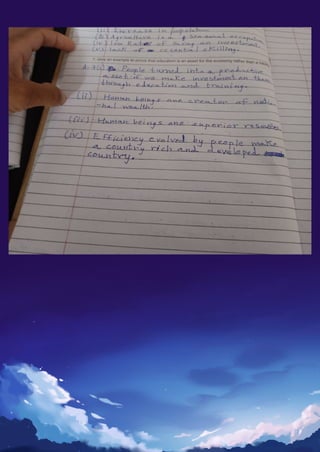 (ii) Increase in population
(iii) Agriculture is a seasonal occupation
(iv) low Rate of saving an investment.
(v) lack of essential skilling.
an example to prove that education is an asset for the economy rather than a
People turned into a productive
asset if we make investment on them
through education and training.
(ii) Human beings are creator of nati-
nal wealth.
(iii) Human beings are superior resources
(iv) Efficiency evolved by people make
a country rich and developed
country.